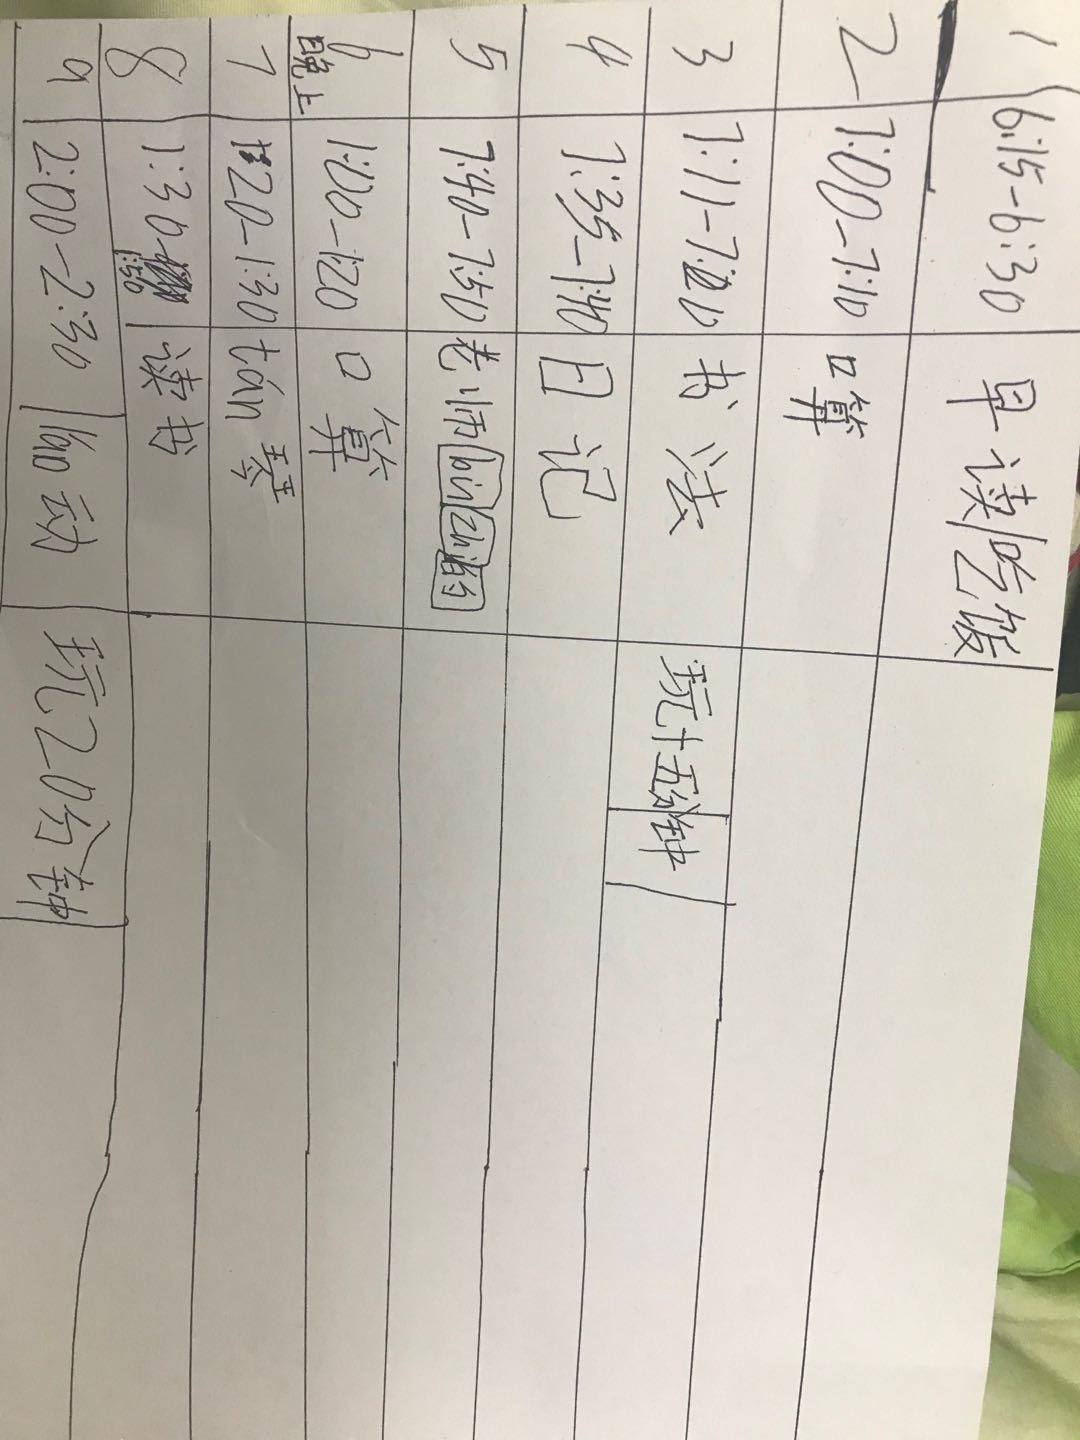 1 6:15-6:30 早读/吃饭
2 7:00-7:10 口算
3 7:11-7:20 书法 玩十五分钟
4 7:35-7:40 日记
5 7:40-7:50 老师bùzhì的
6 晚上 1:00-1:20 口算
7 1:20-1:30 tán琴
8 1:30-1:50 读书
9 2:00-2:30 动 玩20分钟